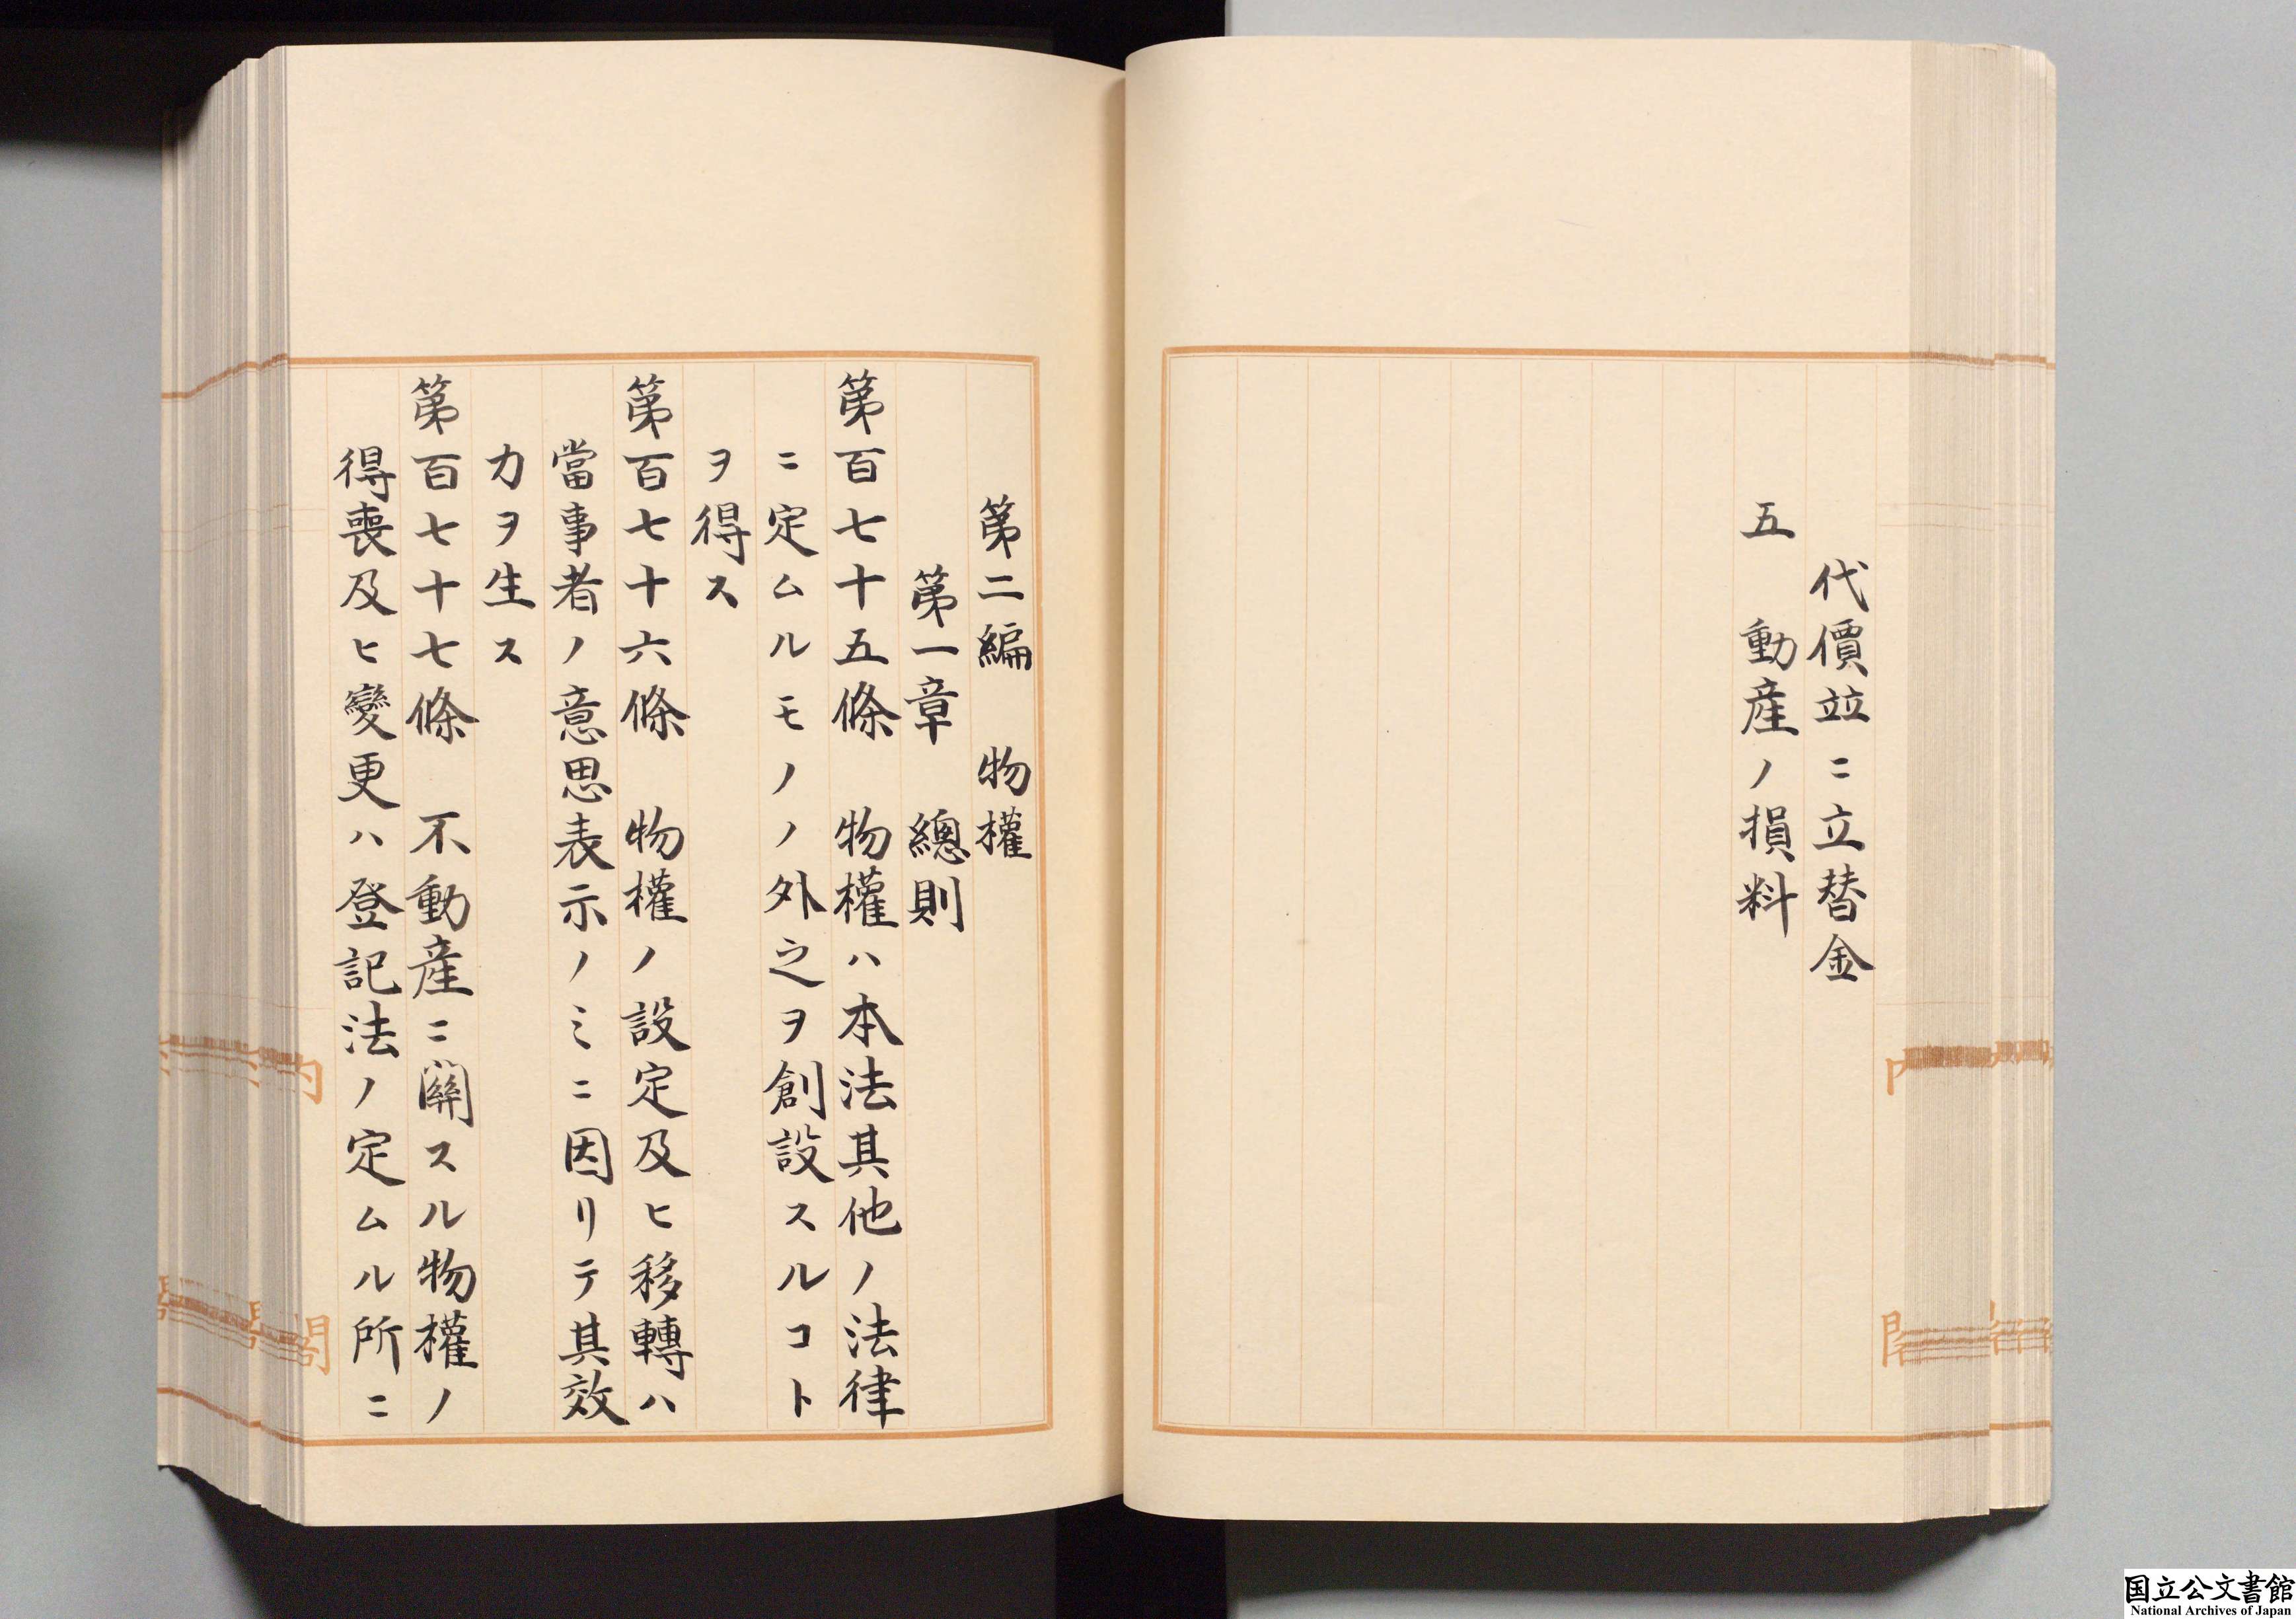 代價竝ニ立替金
五 動産ノ損料
第二編 物權
第一章 總則
第百七十五條 物權ハ本法其他ノ法律
ニ定ムルモノノ外之ヲ創設スルコト
ヲ得ス
第百七十六條 物權ノ設定及ヒ移轉ハ
當事者ノ意思表示ノミニ因リテ其效
力ヲ生ス
第百七十七條 不動産ニ關スル物權ノ
得喪及ヒ變更ハ登記法ノ定ムル所ニ
内
閣
国立公文書館
National Archives of Japan